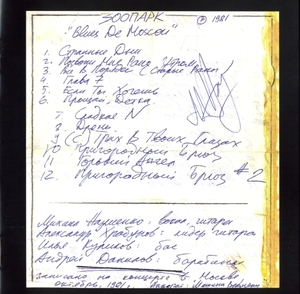 ЗООПАРК ℗ 1981
"Blues De Moscou"
1. Странные Дни
2. Позвони Мне Рано Утром
3. Все в Порядке (Старые Раны)
4. Глава 7
5. Если Ты Хочешь
6. Прощай, Детка
7. Сладкая N
8. Дрянь
9. Грех в Твоих Глазах
10 Пригородный Блюз
11 Горький Ангел
12. Пригородный Блюз #2
Михаил Науменко: вокал, гитара
Александр Храбунов: лидер гитара
Илья Куликов: бас
Андрей Данилов: барабаны
записано на концерте в Москве
октябрь, 1981г.